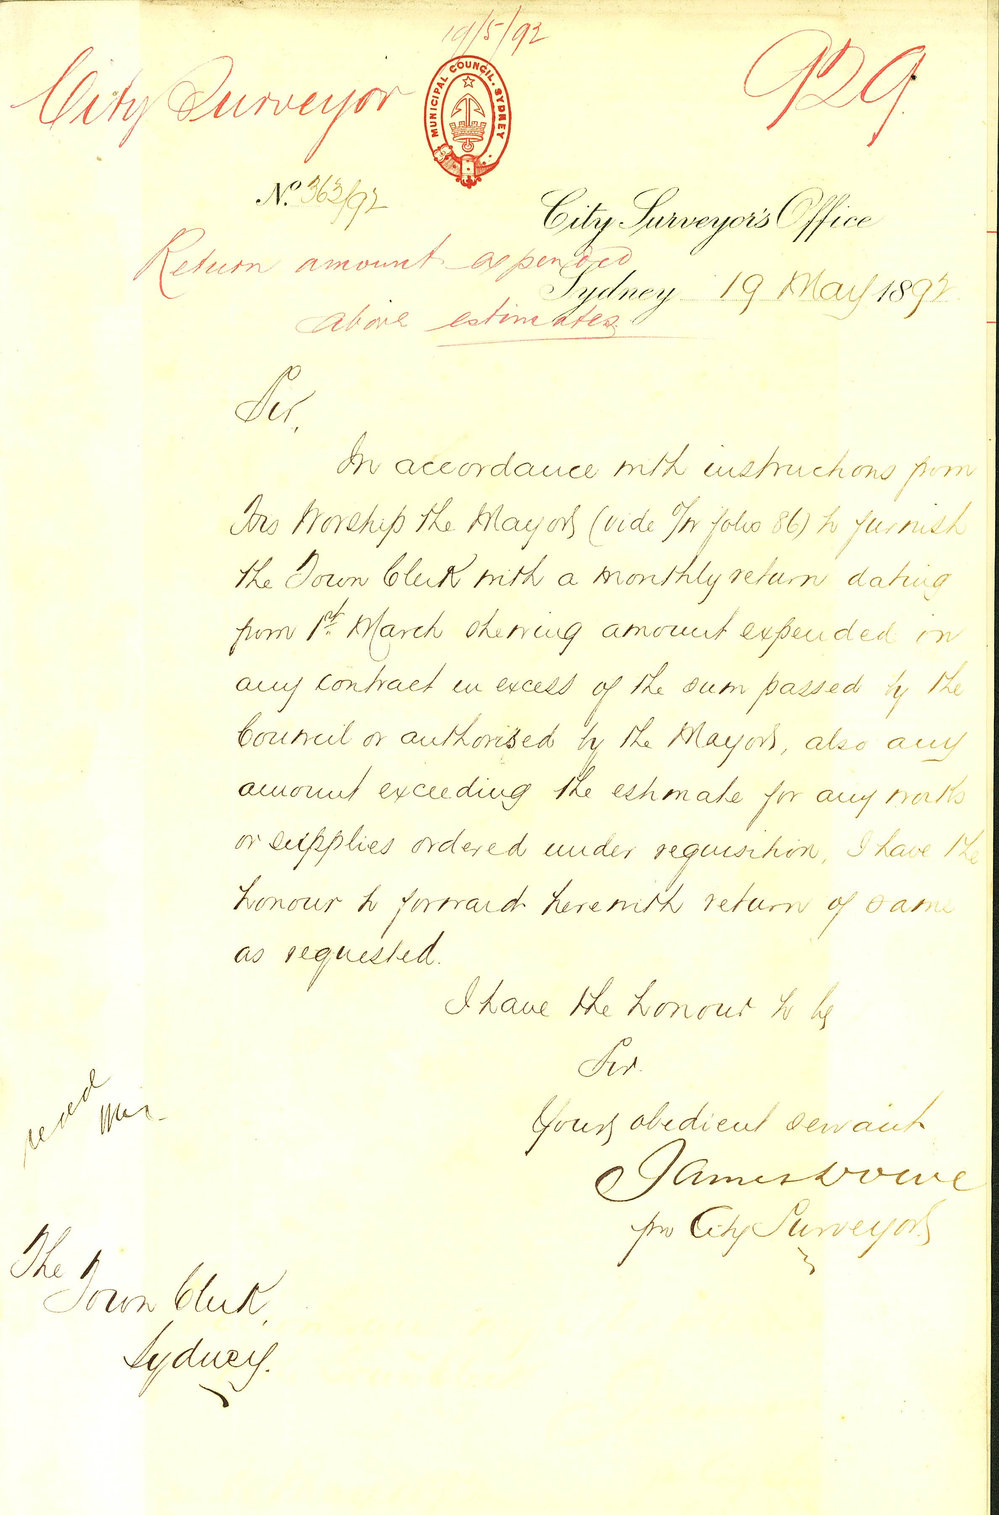 19/5/92
City Surveyor
MUNICIPAL COUNCIL. SYDNEY
929
No. 363/92
City Surveyor's Office
Return amount expended
Sydney 19 May 1892
above estimates
Sir,
In accordance with instructions from
His Worship the Mayor, (vide folio 86) to furnish
the Town Clerk with a monthly return dating
from 1st March shewing amount expended on
any contract in excess of the sum passed by the
Council or authorised by the Mayor, also any
amount exceeding the estimate for any works
or supplies ordered under requisition, I have the
honour to forward herewith return of same
as requested.
I have the honour to be
Sir
Your obedient servant
James Dowe
pro City Surveyor
read
The
Town Clerk,
Sydney.